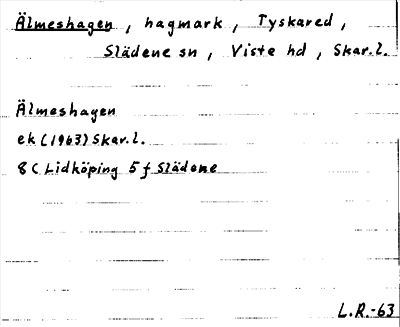 Älmeshagen, hagmark, Tyskared,
Slädene sn, Viste hd, Skar.l.
Älmeshagen
ek (1963) Skar.l.
8C Lidköping 5f Slädene
L.R.-63